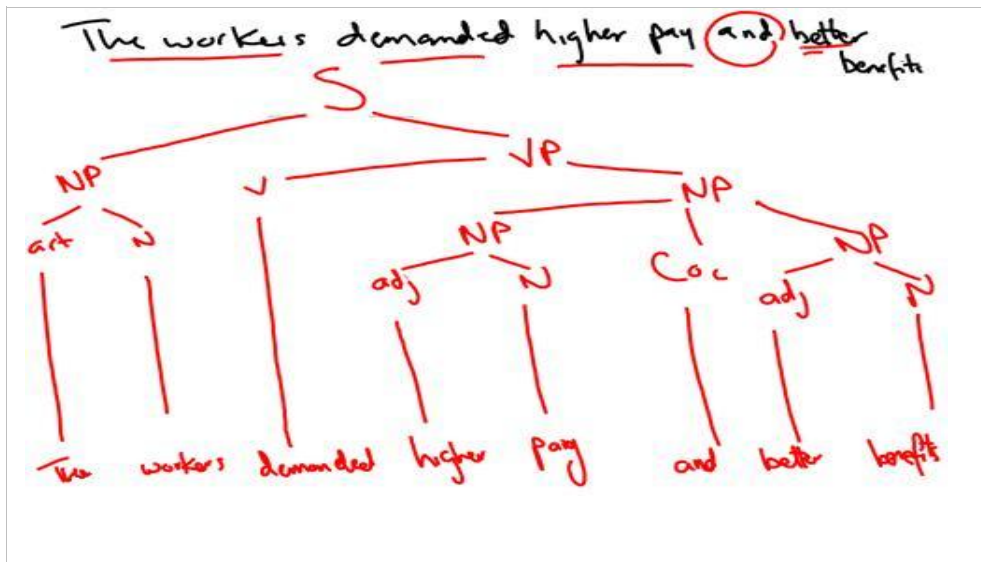 The workers demanded higher pay and better
benefits
S
NP VP
V NP
art N NP Coc NP
adj N adj N
The workers demanded higher pay and better benefits